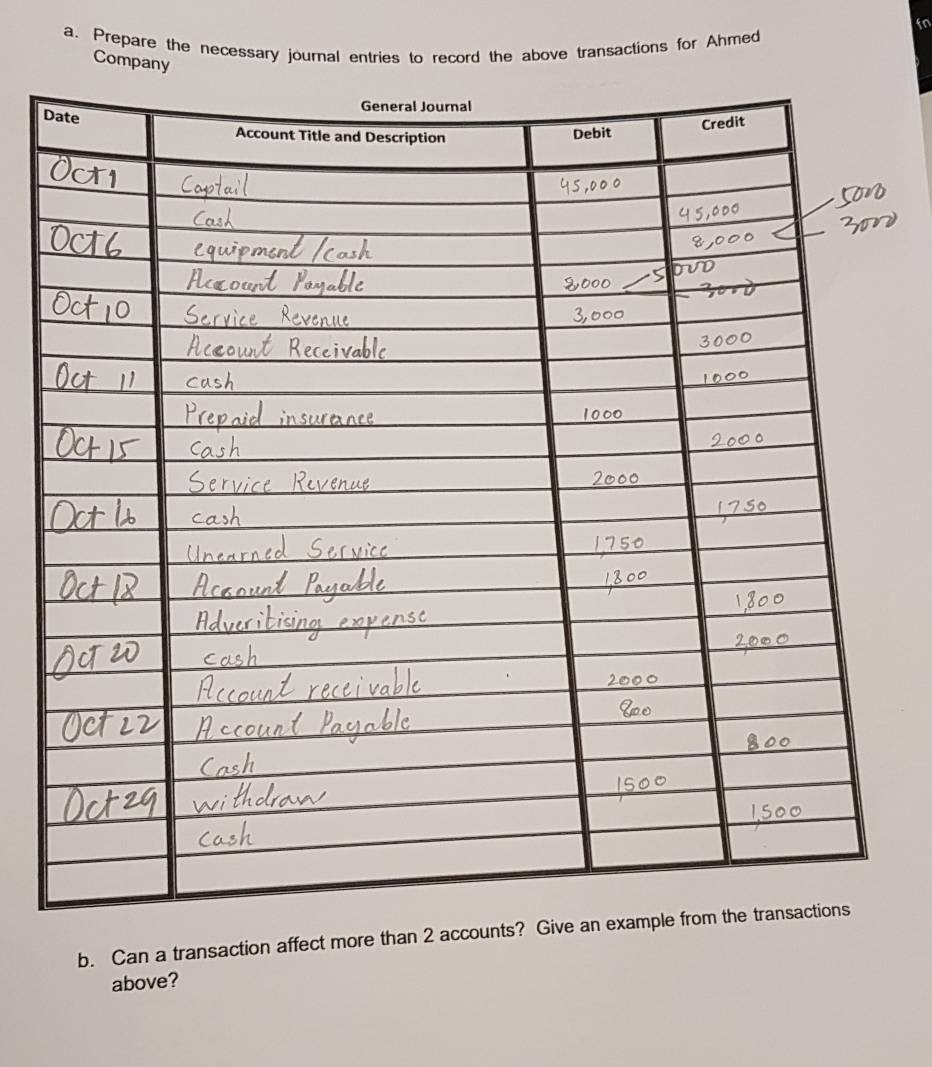 fn
a. Prepare the necessary journal entries to record the above transactions for Ahmed
Company
General Journal
Date Account Title and Description Debit Credit
Oct 1 Captail 45,000
Cash 45,000 5000
Oct 6 equipment / cash 8,000 3000
Account Payable 8,000 5000
3000
Oct 10 Service Revenue 3,000
Account Receivable 3000
Oct 11 cash 1000
Prepaid insurance 1000
Oct 15 cash 2000
Service Revenue 2000
Oct 16 cash 1,750
Unearned Service 1,750
Oct 18 Account Payable 1,800
Adveritising expense 1,800
Oct 20 cash 2,000
Account receivable 2000
Oct 22 Account Payable 800
Cash 800
Oct 29 withdraw 1500
cash 1,500
b. Can a transaction affect more than 2 accounts? Give an example from the transactions
above?